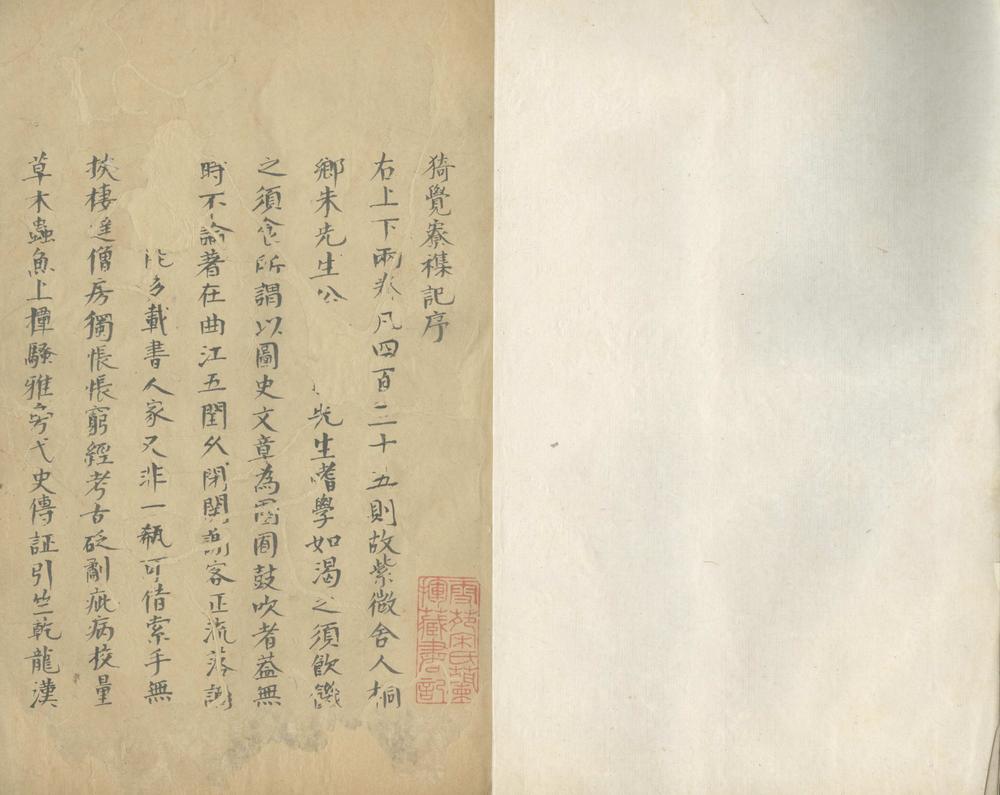 猗覺寮襍記序
右上下兩凡四百二十五則故紫微舍人桐
鄉朱先生公先生嗜學如渴之須飲饑
之須食所謂以圖史文章為園囿鼓吹者葢無
時不論著在曲江五閏久閉關謝客正流落
能多載書人家又非一瓻可借索手無
挾棲遲僧房獨悵悵窮經考古砭劘疵病挍量
草木蟲魚上撞騷雅旁弋史傳証引竺乾龍漢
雪苑宋氏蘭揮藏書記